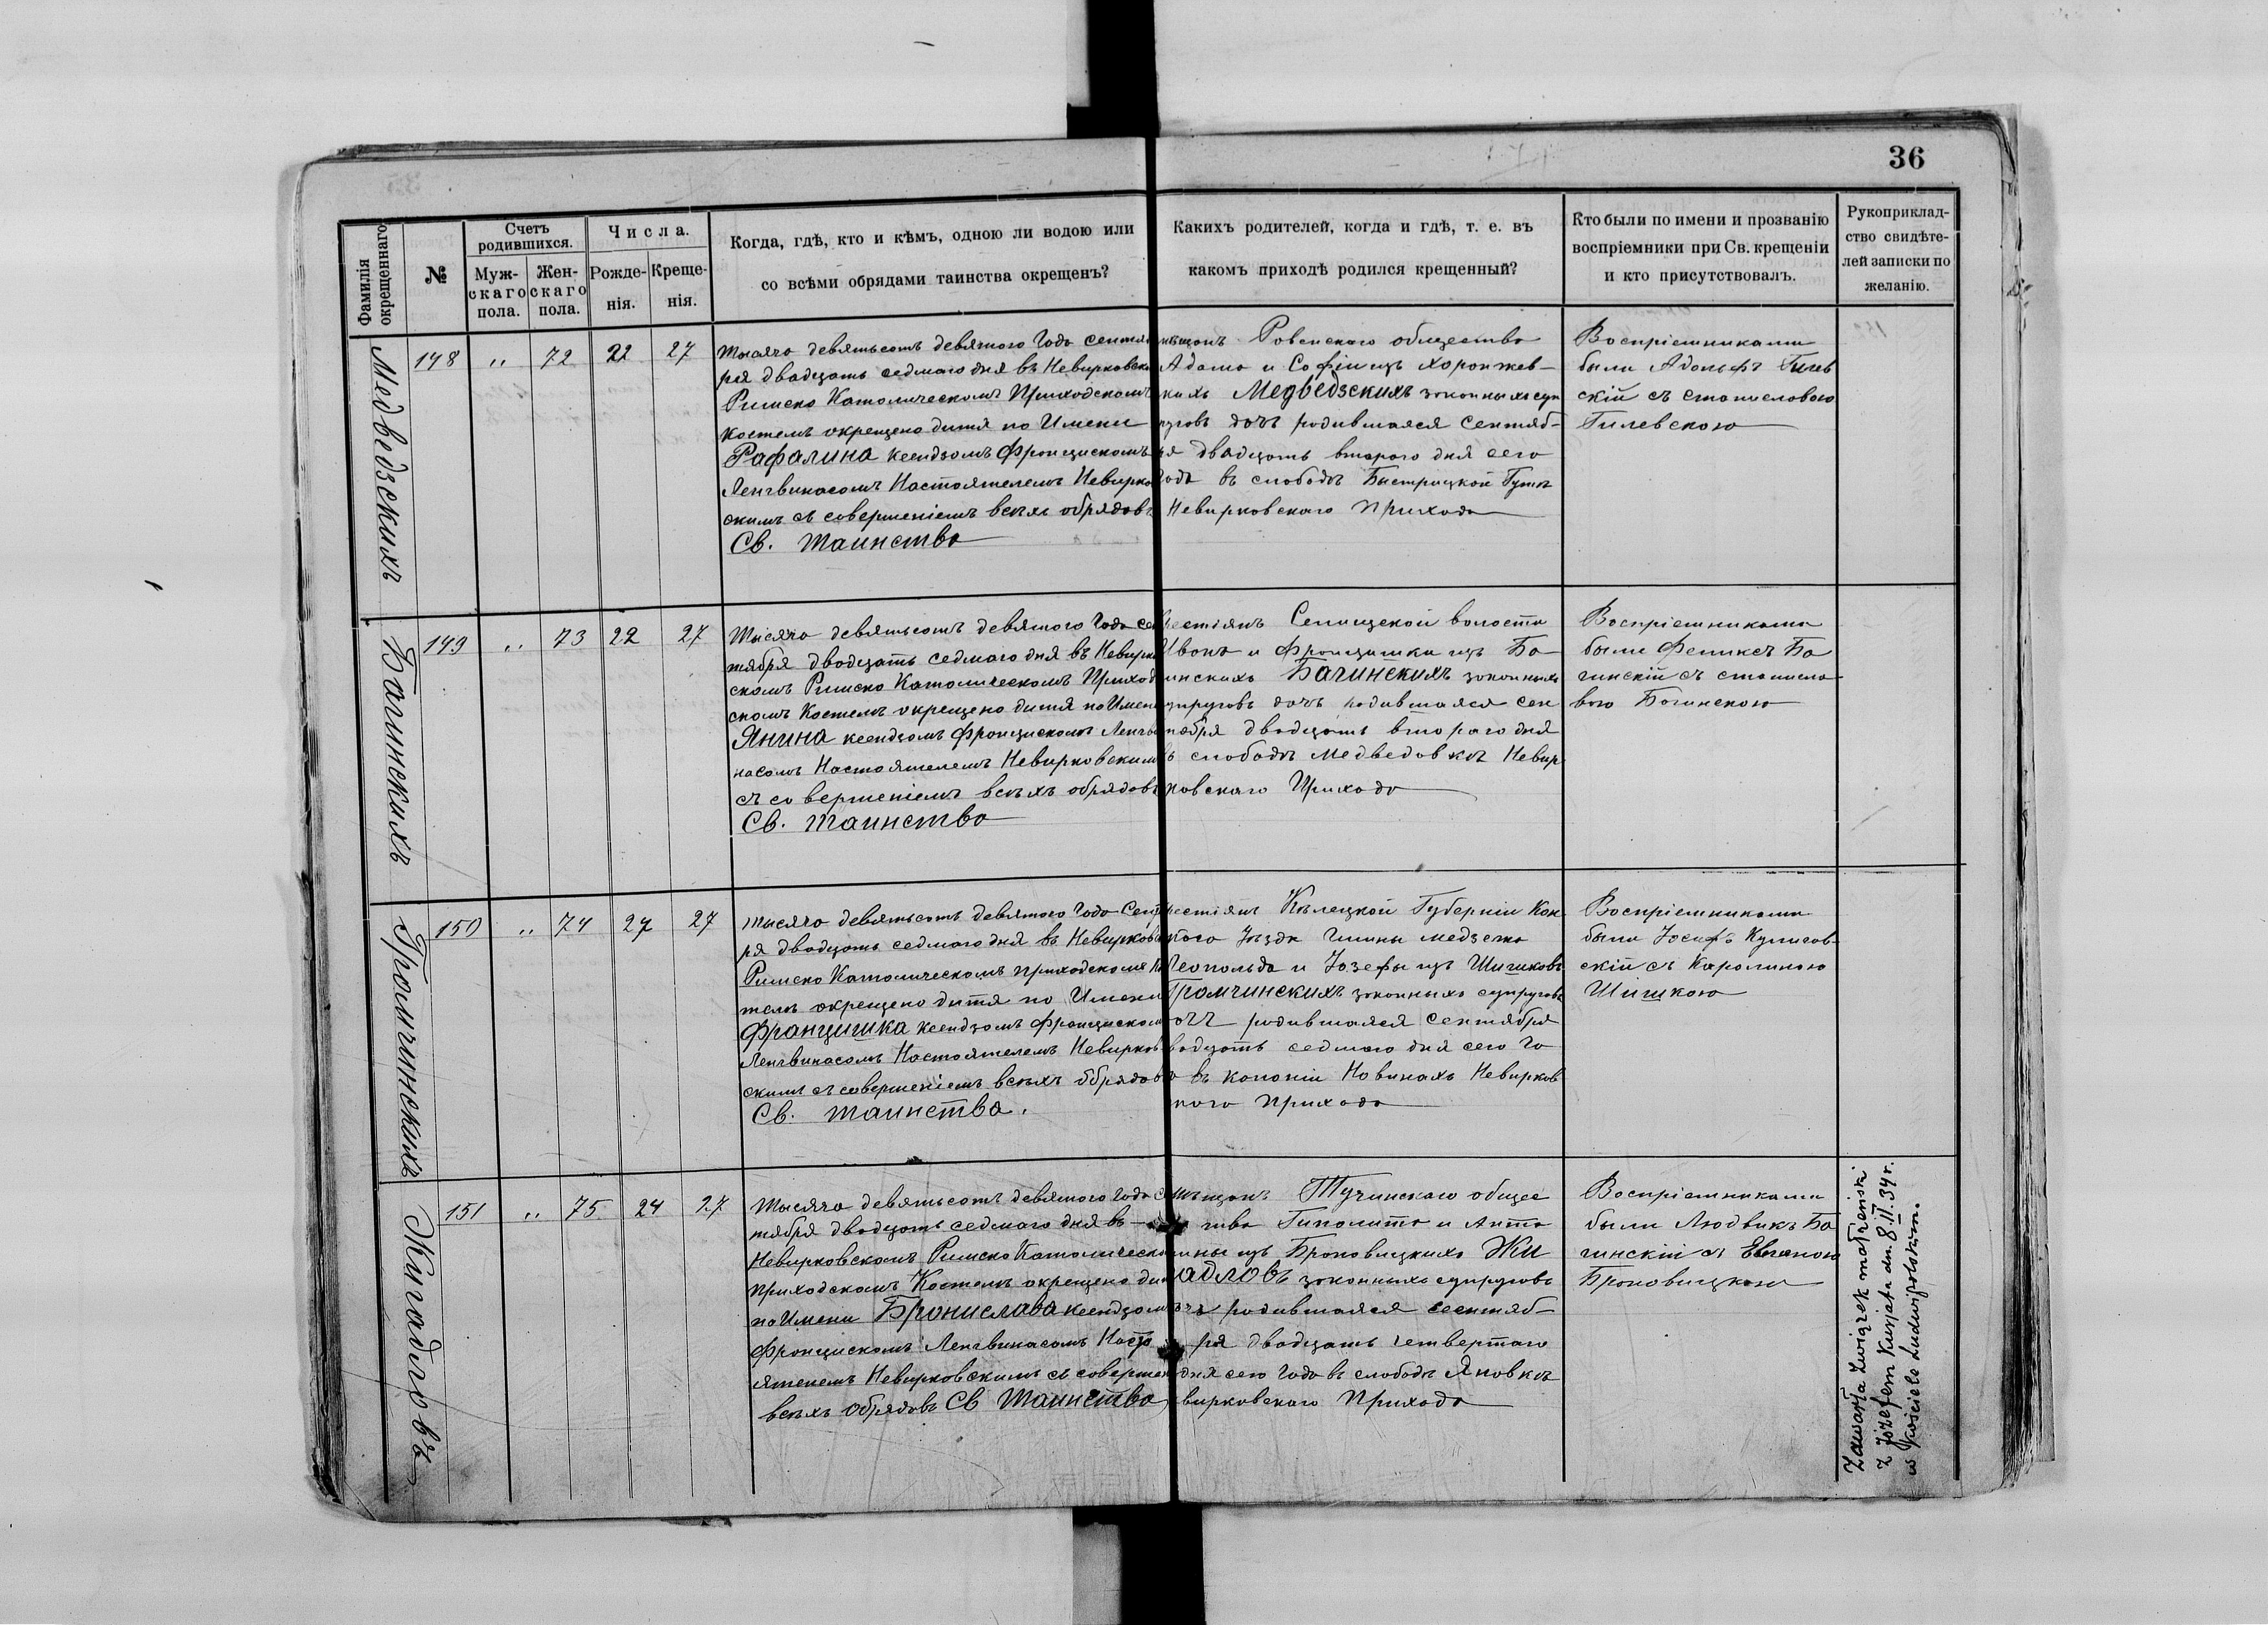 36
Фамилія окрещеннаго
№
Счетъ родившихся.
Муж-
скаго
пола.
Жен-
скаго
пола.
Числа.
Рожде-
нія.
Креще-
нія.
Когда, гдѣ, кто и кѣмъ, одною ли водою или
со всѣми обрядами таинства окрещенъ?
Какихъ родителей, когда и гдѣ, т. е. въ
какомъ приходѣ родился крещенный?
Кто были по имени и прозванію
воспріемники при Св. крещеніи
и кто присутствовалъ.
Рукоприклад-
ство свидѣте-
лей записки по
желанію.
Медведзскихъ
148 „ 72 22 27
Тысяча девятьсотъ девятого Года сентя
ря двадцать седмаго дня въ Невирковско
Римско Католическомъ Приходскомъ
костелѣ окрещено дитя по Имени
Рафалина ксендзомъ Францискомъ
Ленгвинасомъ Настоятелемъ Невирко
скимъ съ совершеніемъ всѣхъ обрядовъ
Св. Таинства
мѣщанъ Ровенскаго общества
Адама и Софіи изъ Хоронжев-
кихъ Медведзскихъ законныхъ суп
руговъ дочь родившаяся сентяб-
ря двадцать второго дня сего
года въ слободѣ Быстрицкой Гутѣ
Невирковскаго Прихода
Воспріемниками
были Адольфъ Гилев
скій съ станиславою
Гилевскою
Багинскихъ
149 „ 73 22 27
Тысяча девятьсотъ девятого Года сен
тября двадцать седмаго дня въ Невирко
скомъ Римско Католическомъ Приход
скомъ Костелѣ окрещено дитя по Имени
Янина ксендзомъ Францискомъ Ленгви
насомъ Настоятелемъ Невирковскимъ
съ совершеніемъ всѣхъ обрядовъ
Св. Таинства
рестіянъ Селищской волости
Ивана и Францишки изъ Ба
инскихъ Багинскихъ законныхъ
супруговъ дочь родившаяся сен
тября двадцать второго дня
въ слободѣ Медведовкѣ Невир
ковскаго Прихода
Воспріемниками
были Феликсъ Ба
гинскій съ станисла
вою Багинскою
Громчинскихъ
150 „ 74 27 27
Тысяча девятьсотъ девятого Года Сент
ря двадцать седмаго дня въ Невирков
Римско Католическомъ приходскомъ Ко
телѣ окрещено дитя по Имени
Францишка ксендзомъ Францискомъ
Ленгвинасомъ Настоятелемъ Невирков
скимъ съ совершеніемъ всѣхъ обрядовъ
Св. Таинства.
рестіянъ Кѣлецкой Губерніи Кон
кого Уѣзда Гмины медзежа
Леопольда и Іозефы изъ Шишковъ
Громчинскихъ законныхъ супруговъ
очь родившаяся сентября
вадцать седмаго дня сего го
а въ колоніи Новинахъ Невирков
кого Прихода
Воспріемниками
были Іосифъ Кулисов-
скій съ Каролиною
Шишкою
Жигадловъ
151 „ 75 24 27
Тысяча девятьсотъ девятого Года с
тября двадцать седмаго дня въ
Невирковскомъ Римско Католическо
приходскомъ Костелѣ окрещено дит
по Имени Бронислава ксендзом
Францискомъ Ленгвинасомъ Насто
ятелемъ Невирковскимъ съ совершен
всѣхъ обрядовъ Св Таинства
мѣщанъ Тучинскаго общес
тва Гиполита и Анто
ины изъ Броновицкихъ Жи
адловъ законныхъ супруговъ
очь родившаяся сентяб-
ря двадцать четвертаго
дня сего года въ слободѣ Яновкѣ
вирковскаго Прихода
Воспріемниками
были Людвикъ Ба
гинскій съ Евгеніею
Броновицкою
Zawarła związek małżeński
z Józefem Kusjata dn. 8.II.34 r.
w kościele Ludwipolskim.